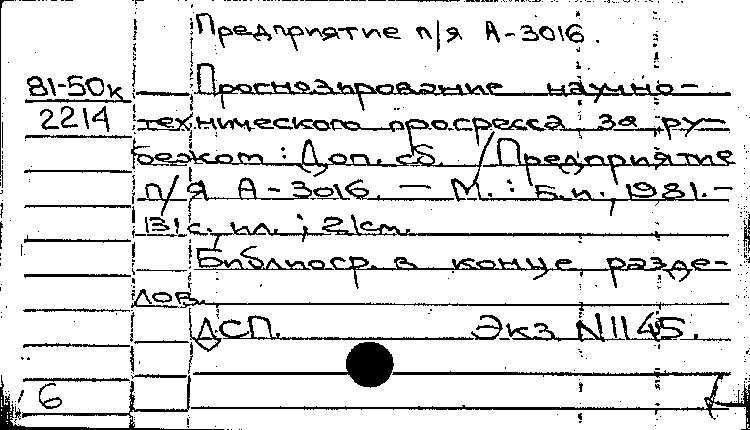 Предприятие п/я А-3016.
81-50к
2214
Прогнозирование научно-
технического прогресса за ру-
бежом: Доп. сб. / Предприятие
п/я А-3016. — М.: Б.и., 1981.-
131с. ил.; 21см.
Библиогр. в конце разде-
лов.
ДСП. Экз N1145.
6